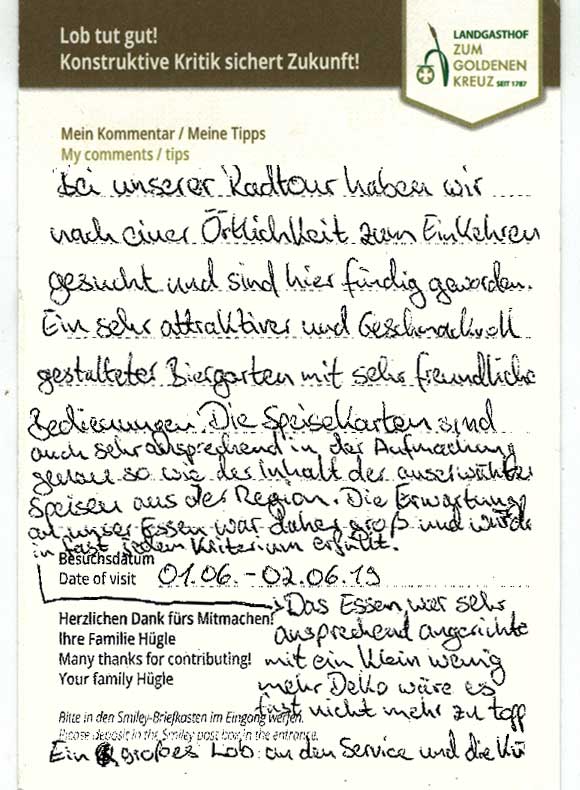 Lob tut gut!
Konstruktive Kritik sichert Zukunft!
LANDGASTHOF
ZUM
GOLDENEN
KREUZ SEIT 1787
Mein Kommentar / Meine Tipps
My comments / tips
Bei unserer Radtour haben wir
nach einer Örtlichkeit zum Einkehren
gesucht und sind hier fündig geworden.
Ein sehr attraktiver und Geschmackvoll
gestalteter Biergarten mit sehr freundliche
Bedienungen. Die Speisekarten sind
auch sehr ansprechend in der Aufmachung
genau so wie der Inhalt der auserwählte
Speisen aus der Region. Die Erwartung
an unser Essen war daher groß und wurde
in fast jedem Kriterium erfüllt.
Besuchsdatum
Date of visit 01.06. - 02.06.19
Das Essen war sehr
ansprechend angerichte
mit ein klein wenig
mehr Deko wäre es
fast nicht mehr zu topp
Herzlichen Dank fürs Mitmachen!
Ihre Familie Hügle
Many thanks for contributing!
Your family Hügle
Bitte in den Smiley-Briefkasten im Eingang werfen.
Please deposit in the Smiley post box in the entrance.
Ein großes Lob an den Service und die Kü